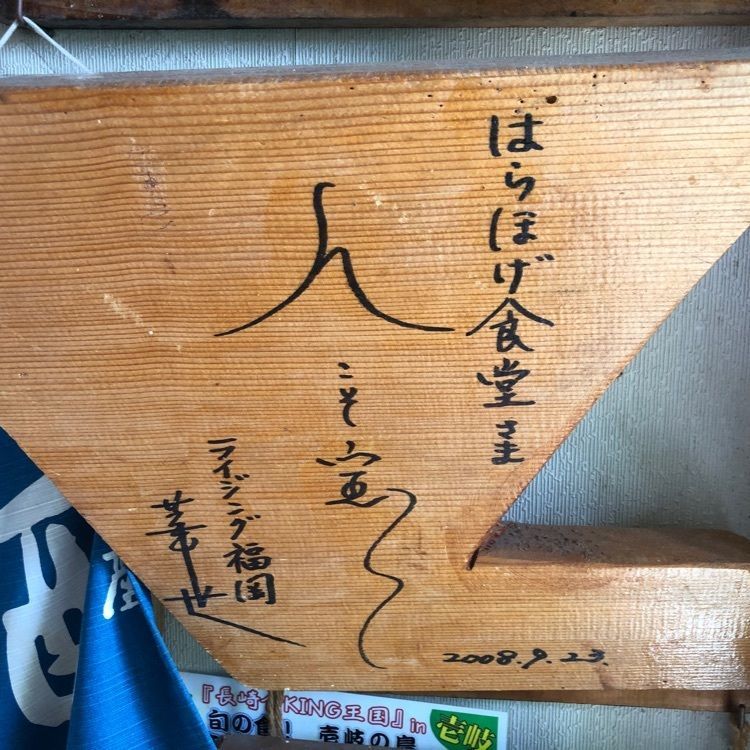 はらほげ食堂さま
人
こそ宝
ライジング福岡
2008.9.23.
産
『長崎 KING王国』in
旬の食！ 壱岐の島
壱岐